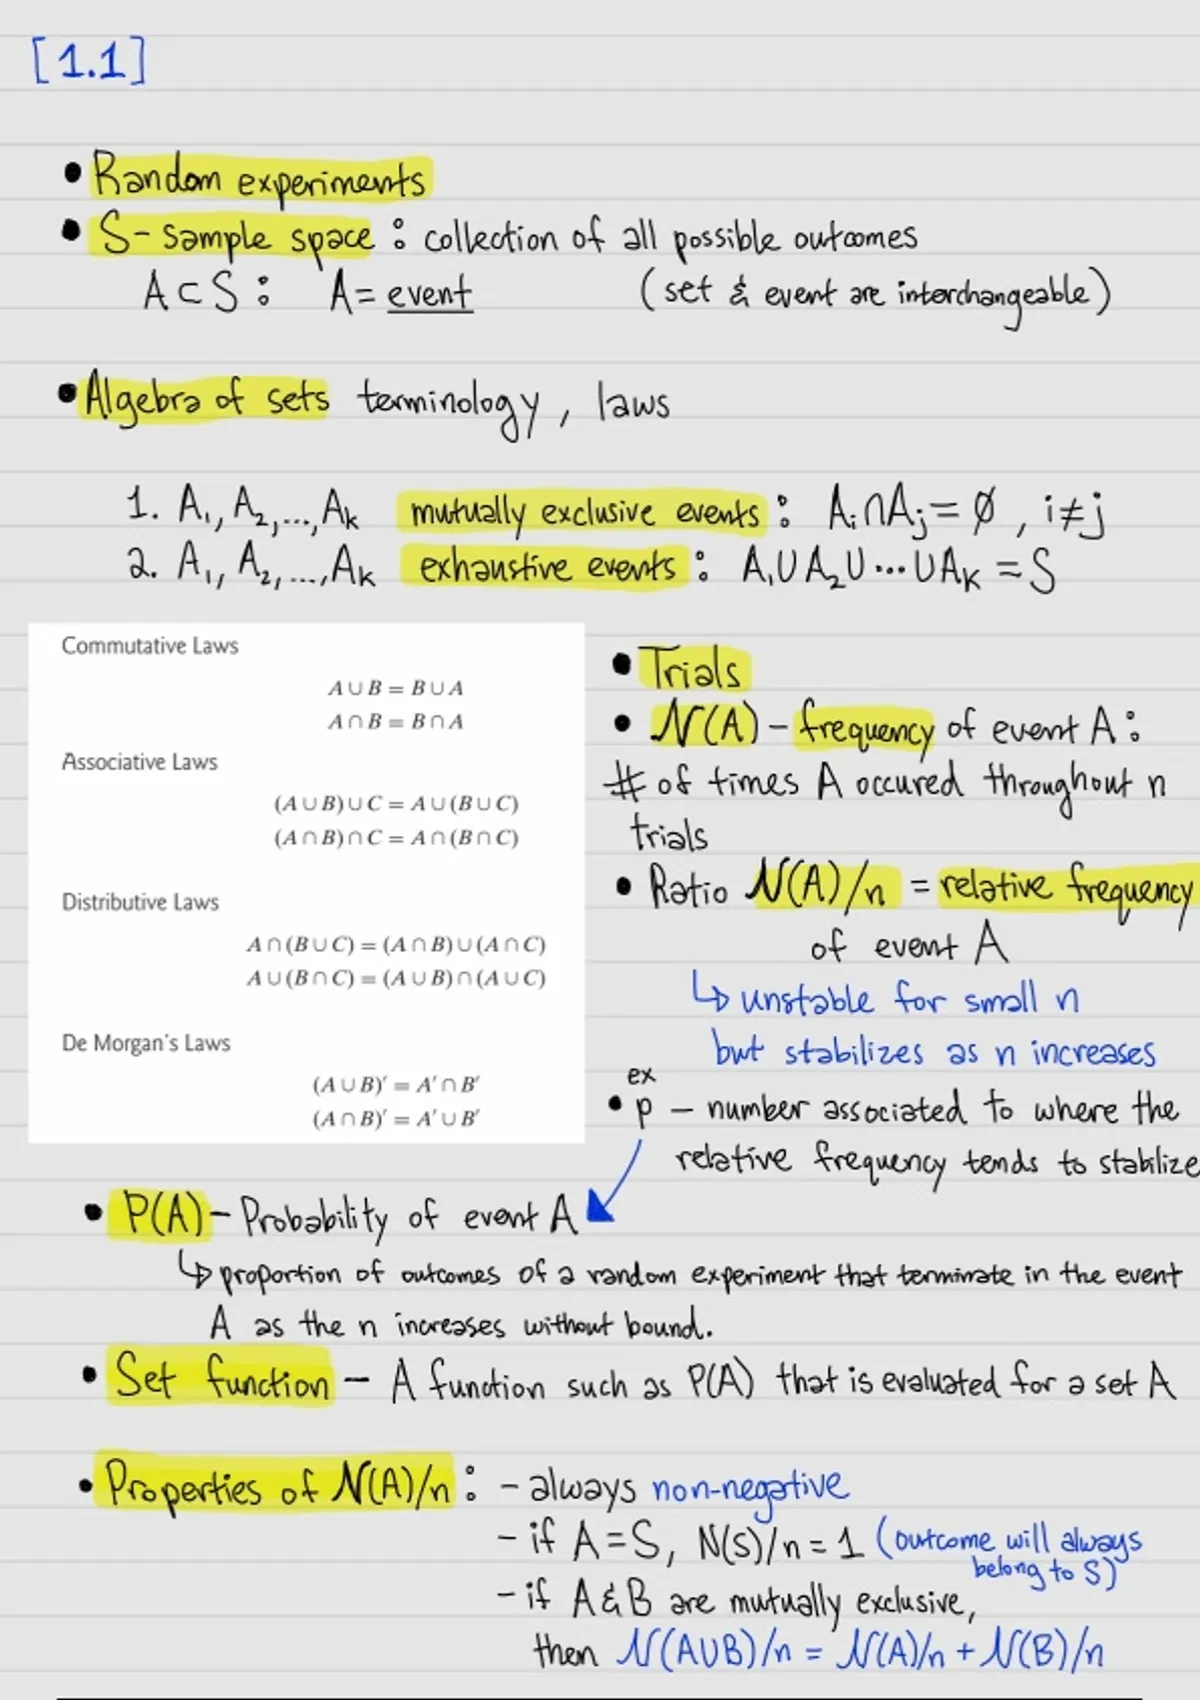 [1.1]
• Random experiments
• S - sample space : collection of all possible outcomes
A ⊂ S : A = event (set & event are interchangeable)
• Algebra of sets terminology, laws
1. A₁, A₂, ..., Aₖ mutually exclusive events : Aᵢ ∩ Aⱼ = ∅, i ≠ j
2. A₁, A₂, ..., Aₖ exhaustive events : A₁ ∪ A₂ ∪ ... ∪ Aₖ = S
Commutative Laws
A ∪ B = B ∪ A
A ∩ B = B ∩ A
Associative Laws
(A ∪ B) ∪ C = A ∪ (B ∪ C)
(A ∩ B) ∩ C = A ∩ (B ∩ C)
Distributive Laws
A ∩ (B ∪ C) = (A ∩ B) ∪ (A ∩ C)
A ∪ (B ∩ C) = (A ∪ B) ∩ (A ∪ C)
De Morgan's Laws
(A ∪ B)′ = A′ ∩ B′
(A ∩ B)′ = A′ ∪ B′
• Trials
• N(A) – frequency of event A :
# of times A occured throughout n
trials
• Ratio N(A)/n = relative frequency
of event A
↳ unstable for small n
but stabilizes as n increases
ex
• p – number associated to where the
relative frequency tends to stabilize
• P(A) – Probability of event A
↳ proportion of outcomes of a random experiment that terminate in the event
A as the n increases without bound.
• Set function – A function such as P(A) that is evaluated for a set A
• Properties of N(A)/n : - always non-negative
- if A = S, N(S)/n = 1 (outcome will always
belong to S)
- if A & B are mutually exclusive,
then N(A∪B)/n = N(A)/n + N(B)/n